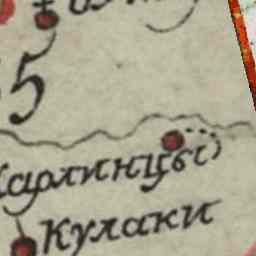 5
Карлинцы
Кулаки